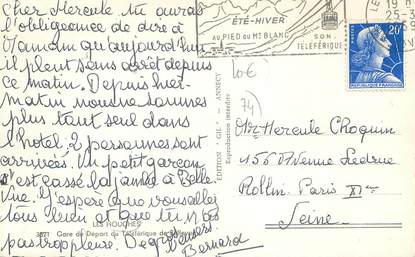 Cher Hercule tu auras
l'obligeance de dire à
Maman qu'aujourd'hui
il pleut sans arrêt depuis
ce matin. Depuis hier
matin nous ne sommes
plus tout seul dans
l'hotel: 2 personnes sont
arrivées. Un petit garçon
s'est cassé la jambe à Belle
Vue. J'espère que vous allez
tous bien et que tu n'es
pas trop pleure. De gros
baisers
Bernard
LES HOUCHES
3821 Gare de Départ du Téléférique de
EDITION "GIL" - ANNECY
Reproduction interdite
ÉTÉ-HIVER
AU PIED DU MT BLANC
SON
TÉLÉFÉRIQUE
19 H
25-
20F
REPUBLIQUE FRANÇAISE
10€
74
Mr Hercule Choquin
156 Avenue Ledru
Rollin. Paris XIe
Seine